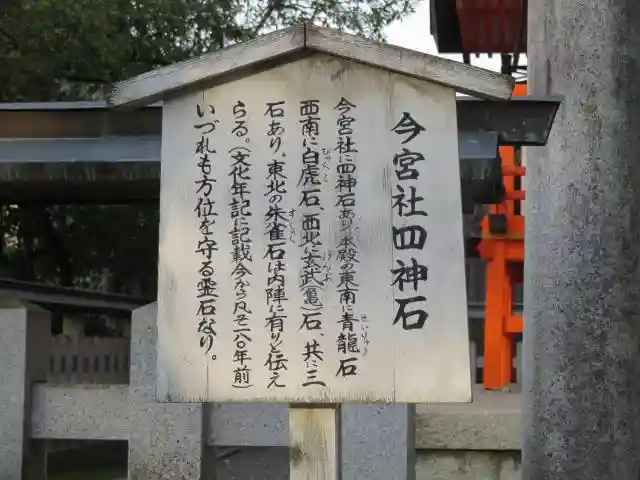 今宮社四神石
今宮社に四神石あり、本殿の東南に青龍石
西南に白虎石、西北に玄武(亀)石、共に三
石あり。東北の朱雀石は内陣に有りと伝え
らる。(文化年記に記載今から凡そ一八〇年前)
いづれも方位を守る霊石なり。
せいりゅう
びゃっこ
げんぶ
すじゃく